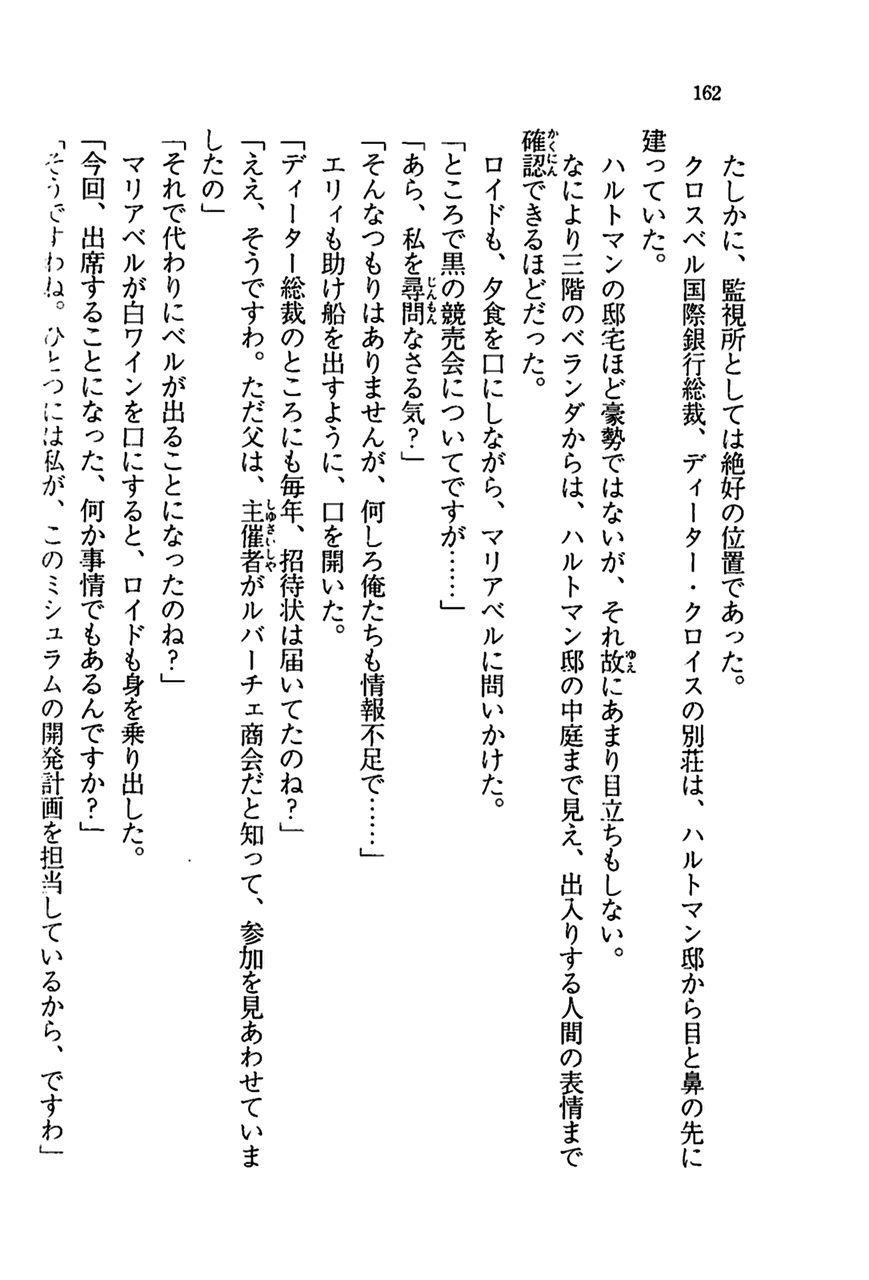 162
たしかに、監視所としては絶好の位置であった。
クロスベル国際銀行総裁、ディーター・クロイスの別荘は、ハルトマン邸から目と鼻の先に
建っていた。
ハルトマンの邸宅ほど豪勢ではないが、それ故にあまり目立ちもしない。
なにより三階のベランダからは、ハルトマン邸の中庭まで見え、出入りする人間の表情まで
確認できるほどだった。
ロイドも、夕食を口にしながら、マリアベルに問いかけた。
「ところで黒の競売会についてですが……」
「あら、私を尋問なさる気？」
「そんなつもりはありませんが、何しろ俺たちも情報不足で……」
エリィも助け船を出すように、口を開いた。
「ディーター総裁のところにも毎年、招待状は届いてたのね？」
「ええ、そうですわ。ただ父は、主催者がルバーチェ商会だと知って、参加を見あわせていま
したの」
「それで代わりにベルが出ることになったのね？」
マリアベルが白ワインを口にすると、ロイドも身を乗り出した。
「今回、出席することになった、何か事情でもあるんですか？」
「そうですわね。ひとつには私が、このミシュラムの開発計画を担当しているから、ですわ」